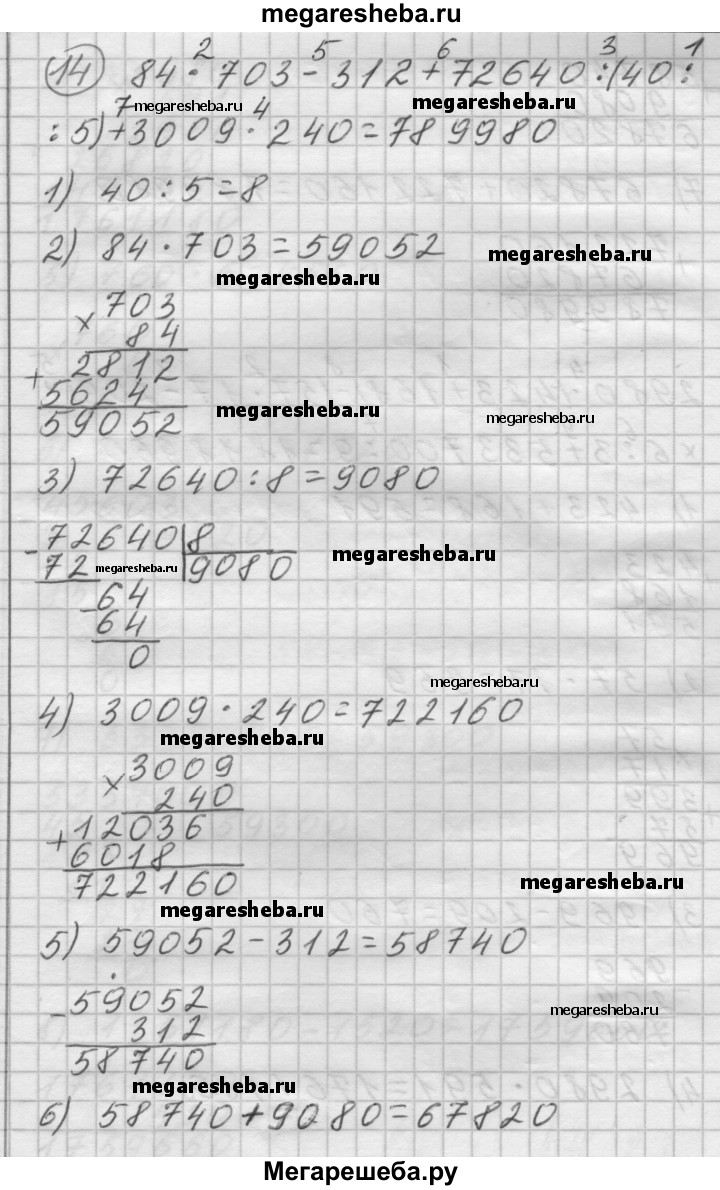 megaresheba.ru
2 5 6 3 1
14 84 · 703 - 312 + 72640 : (40 :
7 megaresheba.ru 4 megaresheba.ru
: 5) + 3009 · 240 = 789980
1) 40 : 5 = 8
2) 84 · 703 = 59052 megaresheba.ru
megaresheba.ru
× 703
84
+ 2812
5624
59052 megaresheba.ru
megaresheba.ru
3) 72640 : 8 = 9080
- 72640 | 8
72 megaresheba.ru 9080 megaresheba.ru
- 64
64
0
megaresheba.ru
4) 3009 · 240 = 722160
megaresheba.ru
× 3009
240
+ 12036
6018
722160 megaresheba.ru
megaresheba.ru
5) 59052 - 312 = 58740
- 59052 megaresheba.ru
312
58740
megaresheba.ru
6) 58740 + 9080 = 67820
Мегарешеба.ру